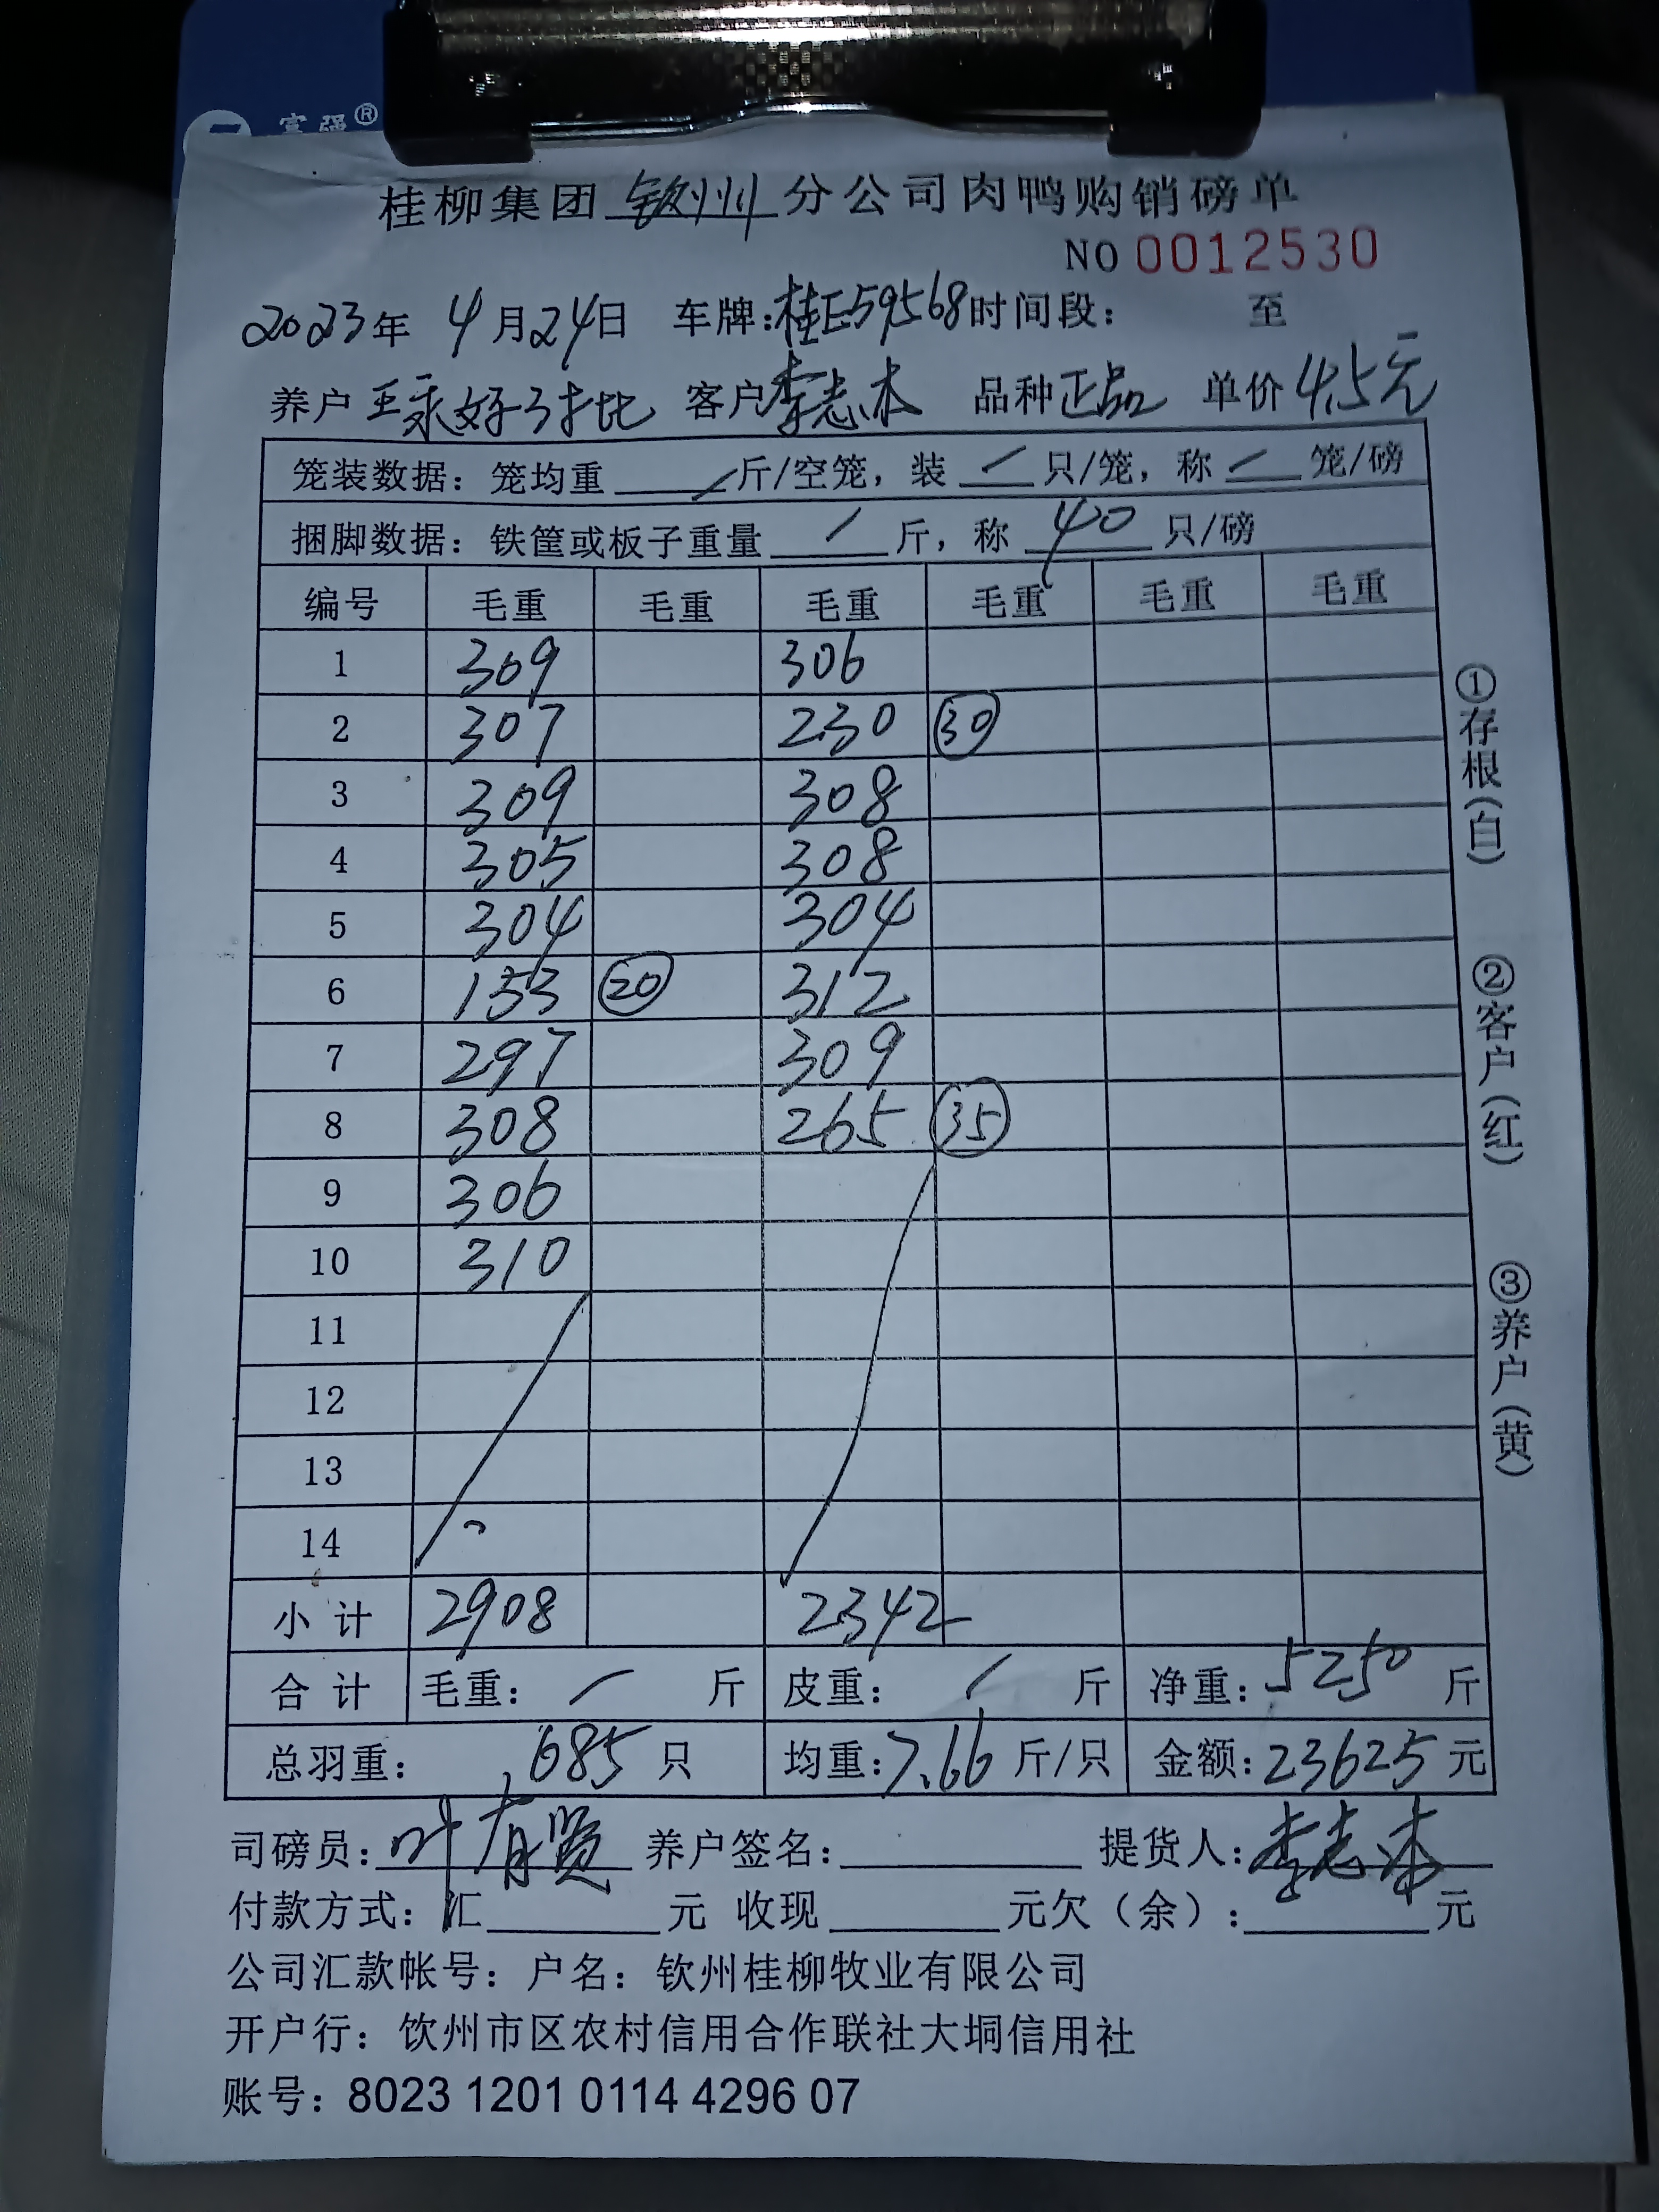 富强®
桂柳集团 钦州 分公司肉鸭购销磅单
NO 0012530
2023年 4月24日 车牌:桂E59568时间段: 至
养户 王永好 客户 李志本 品种 正品 单价 4.5元
笼装数据: 笼均重 / 斤/空笼, 装 / 只/笼, 称 / 笼/磅
捆脚数据: 铁筐或板子重量 / 斤, 称 40 只/磅
编号 毛重 毛重 毛重 毛重 毛重 毛重
1 309 306
2 307 230 30
3 309 308
4 305 308
5 304 304
6 153 20 312
7 297 309
8 308 265 35
9 306
10 310
11
12
13
14
小计 2908 2342
合计 毛重: / 斤 皮重: / 斤 净重: 5250 斤
总羽重: 685 只 均重: 7.66 斤/只 金额: 23625 元
司磅员: 叶有贤 养户签名: 提货人: 李志本
付款方式: 汇 元 收现 元欠(余): 元
公司汇款帐号: 户名: 钦州桂柳牧业有限公司
开户行: 钦州市区农村信用合作联社大垌信用社
账号: 8023 1201 0114 4296 07
①存根(白) ②客户(红) ③养户(黄)